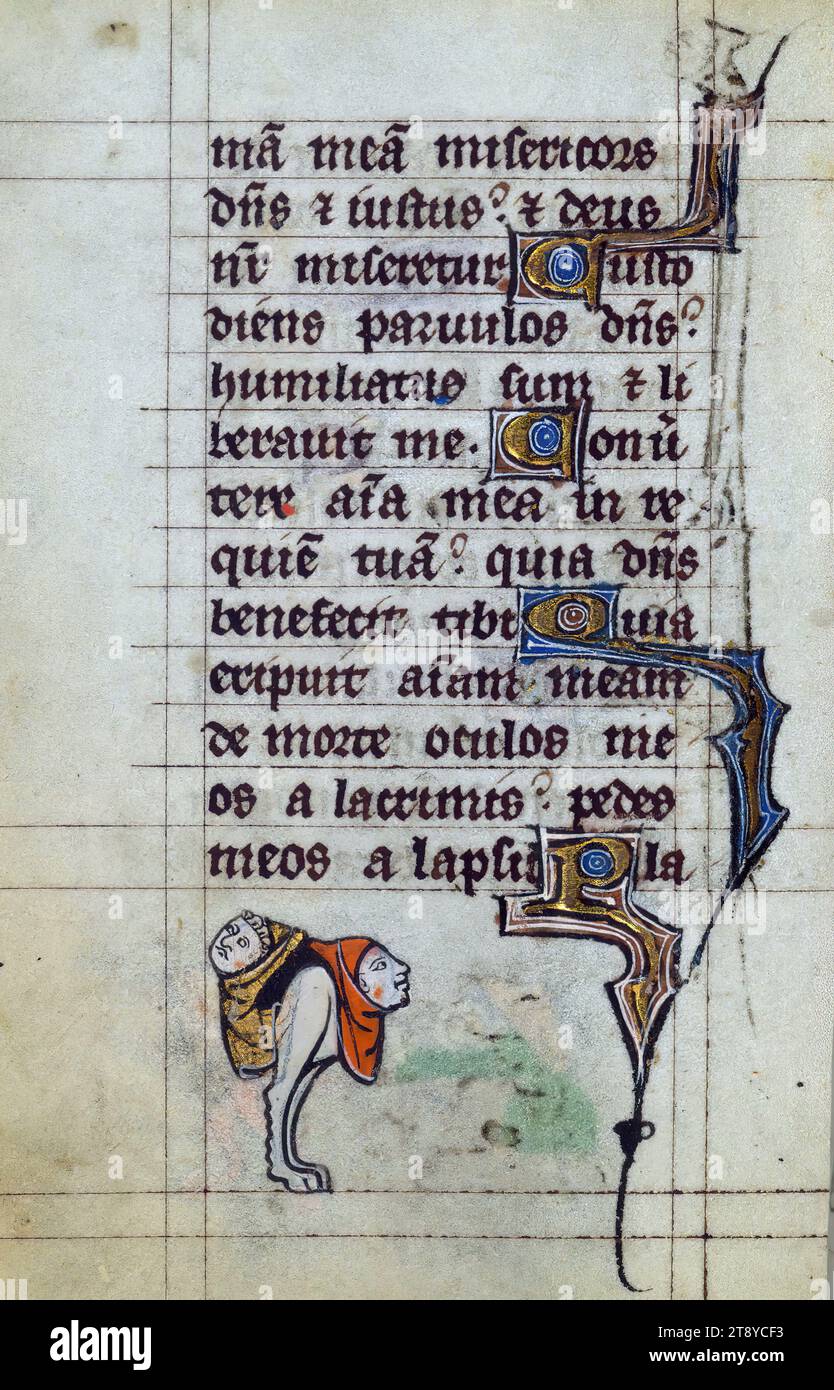 mā meā misericors
dn̄s ⁊ iustus? ⁊ deus
nr̄ miseretur Custo
diens paruulos dn̄s?
humiliatus sum ⁊ li
berauit me. Conū
tere aīa mea in re
quiē tuā? quia dn̄s
benefecit tibi Quia
eripuit aīam meam
de morte oculos me
os a lacrimis? pedes
meos a lapsu Pla
alamy
Image ID: 2T8YCF3
www.alamy.com